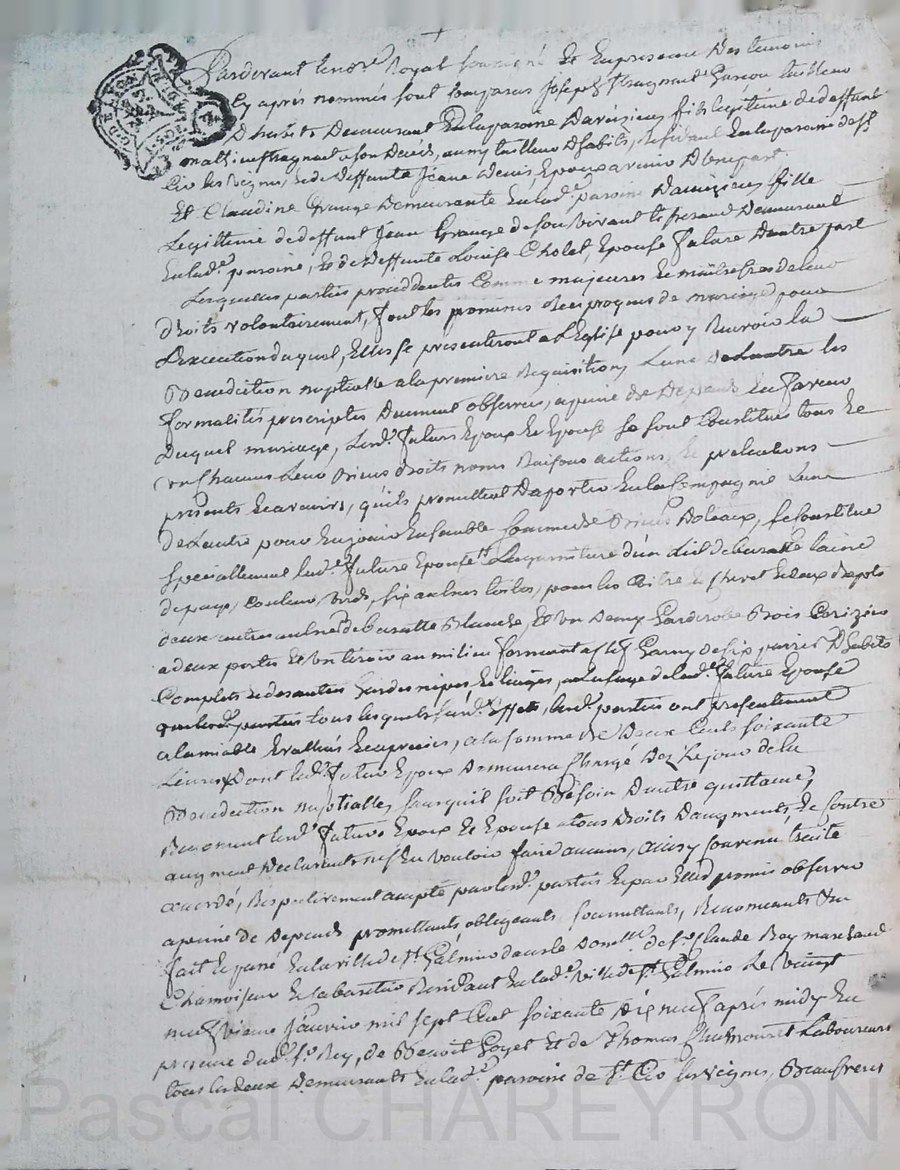 Pardevant le no.re Royal soussigné Et En presence Des temoins
Cy aprés nommés sont comparus Joseph Tailleur
D'habits Demeurant En la paroisse D'aveizieux fils legitime de deffunt
son Decès, aussy tailleur D'habits, residant En la paroisse de St
et de deffunte Jeane Epoux avenir D'Une part
Et Claudine Grange Demeurante En lad.e paroisse D'aveizieux fille
Legittime de deffunt Jean Grange de son vivant Demeurant
En lad.e paroisse, et de deffunte Louise Cholet, Epouse future D'autre part
Lesquelles parties procedentes Comme majeures et maitresses de leur
droits volontairement, font les promesses de mariage pour
L'execution duquel, Elles se presenteront a L'Eglise pour y Recevoir la
Benediction nuptialle a la premiere Requisition, L'une de Lautre les
formalités prescriptes Duement observées, a peine de Depends En faveur
Duquel mariage, Lesd.s futurs Epoux et Epouse se sont Constitués tous et
un Chacuns Leurs Biens droits noms Raisons actions, et pretentions
présents et avenirs, qu'ils promettent D'aporter En la Compagnie L'un
De Lautre pour En jouir Ensemble Comme de Biens Doteaux, se Constitue
specialement lad.e future Epouse La garniture d'un Lit de buratte laine
de pays, Couleur verde, six aulnes toiles, pour les et deux draps
deux autres aulnes de buratte Blanche, Et Un Demy Garderobe Bois Cerizier
a deux portes Et Un tiroir au milieu fermant a clef Garny de six paires D'habits
Complets et de ses autres hardes nipes, et linges, a l'usage de lad.e future Epouse
tous lesquels susd.s Effets, lesd.s parties ont presentement
a l'amiable Evalués et apreciés, a la somme de Deux Cents soixante
Livres Dont led.t futur Epoux Demeurera Chargé Dez Le jour de la
Benediction nuptialle, sans quil soit Besoin D'autre quittance,
Renoncent lesd.s futurs Epoux Et Epouse a tous Droits D'augments, et Contre
augment Declarants n'en vouloir faire aucuns, ainsy Convenu, traité
accordé, Respectivement accepté par lesd.s parties et par Elles promis observer
a peine de Depends promettants, obligeants soumettants, Renonceants &a
fait et passé En la ville de St Galmier dans le Domille de Sr Claude Rey marchand
Chamoiseur et Cabaretier Residant En lad.e ville de St Galmier Le Vingt
neufvieme Janvier mil sept Cent soixante Dix neuf aprés midy En
presence dud. Sr Rey, de Benoit Goyet Et de Thomas Laboureurs
tous les deux Demeurants En lad.e paroisse de St Cir les Vignes, Beaufreres
Pascal CHAREYRON